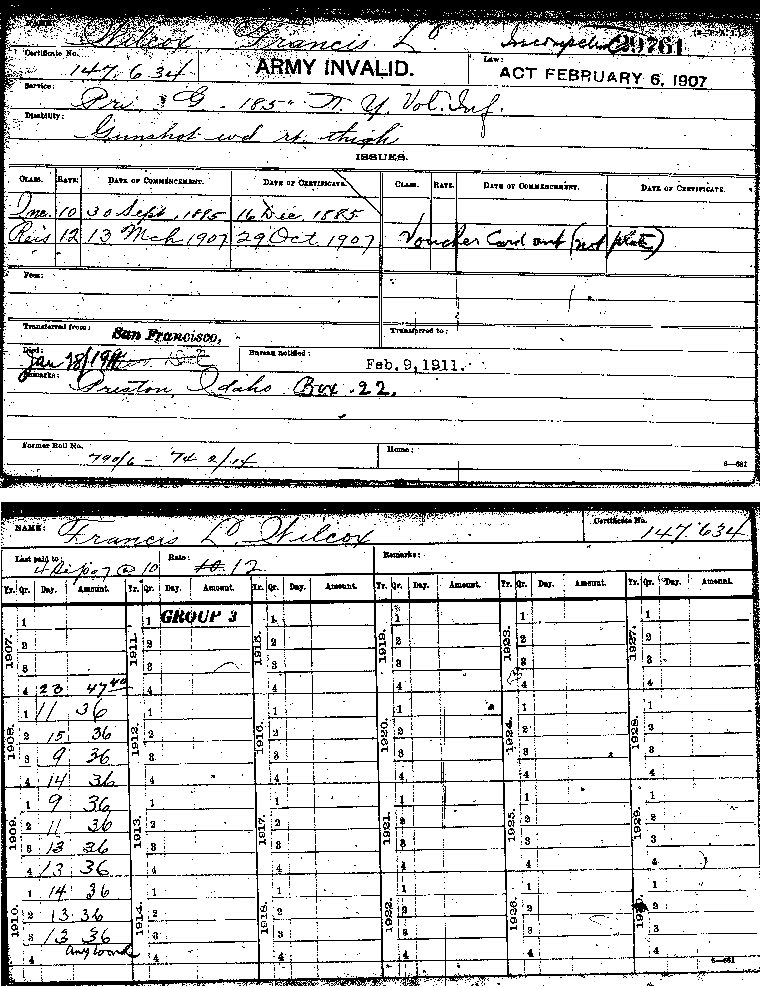 Wilcox, Francis L. 29761
Certificate No. 147.634 ARMY INVALID. Law: ACT FEBRUARY 6, 1907
Service: Pri. G - 185" N. Y. Vol. Inf.
Disability: Gunshot wd rt. thigh
ISSUES.
CLASS. RATE. DATE OF COMMENCEMENT. DATE OF CERTIFICATE. CLASS. RATE. DATE OF COMMENCEMENT. DATE OF CERTIFICATE.
Inc. 10 30 Sept, 1885 16 Dec, 1885
Reis 12 13 Mch 1907 29 Oct. 1907 Voucher Card out (not plate)
Fees:
Transferred from: San Francisco, Transferred to:
Died: Jan 28/1911 Bureau notified: Feb. 9, 1911.
Remarks: Preston, Idaho Box 22.
Former Roll No. Home:
6—681
NAME: Francis L. Wilcox Certificate No. 147.634
Last paid to: 4 Sep 07 @ 10 Rate: 10 12 Remarks:
Yr. Qr. Day. Amount. Yr. Qr. Day. Amount. Yr. Qr. Day. Amount. Yr. Qr. Day. Amount. Yr. Qr. Day. Amount. Yr. Qr. Day. Amount.
1907. 1911. 1915. 1919. 1923. 1927.
1 1 GROUP 3 1 1 1 1
2 2 2 2 2 2
3 3 3 3 3 3
4 23 47 40 4 4 4 4 4
1908. 1912. 1916. 1920. 1924. 1928.
1 11 36 1 1 1 1 1
2 15 36 2 2 2 2 2
3 9 36 3 3 3 3 3
4 14 36 4 4 4 4 4
1909. 1913. 1917. 1921. 1925. 1929.
1 9 36 1 1 1 1 1
2 11 36 2 2 2 2 2
3 13 36 3 3 3 3 3
4 13 36 4 4 4 4 4
1910. 1914. 1918. 1922. 1926.
1 14 36 1 1 1 1 1
2 13 36 2 2 2 2 2
3 13 36 3 3 3 3 3
4 4 4 4 4 4
6—681